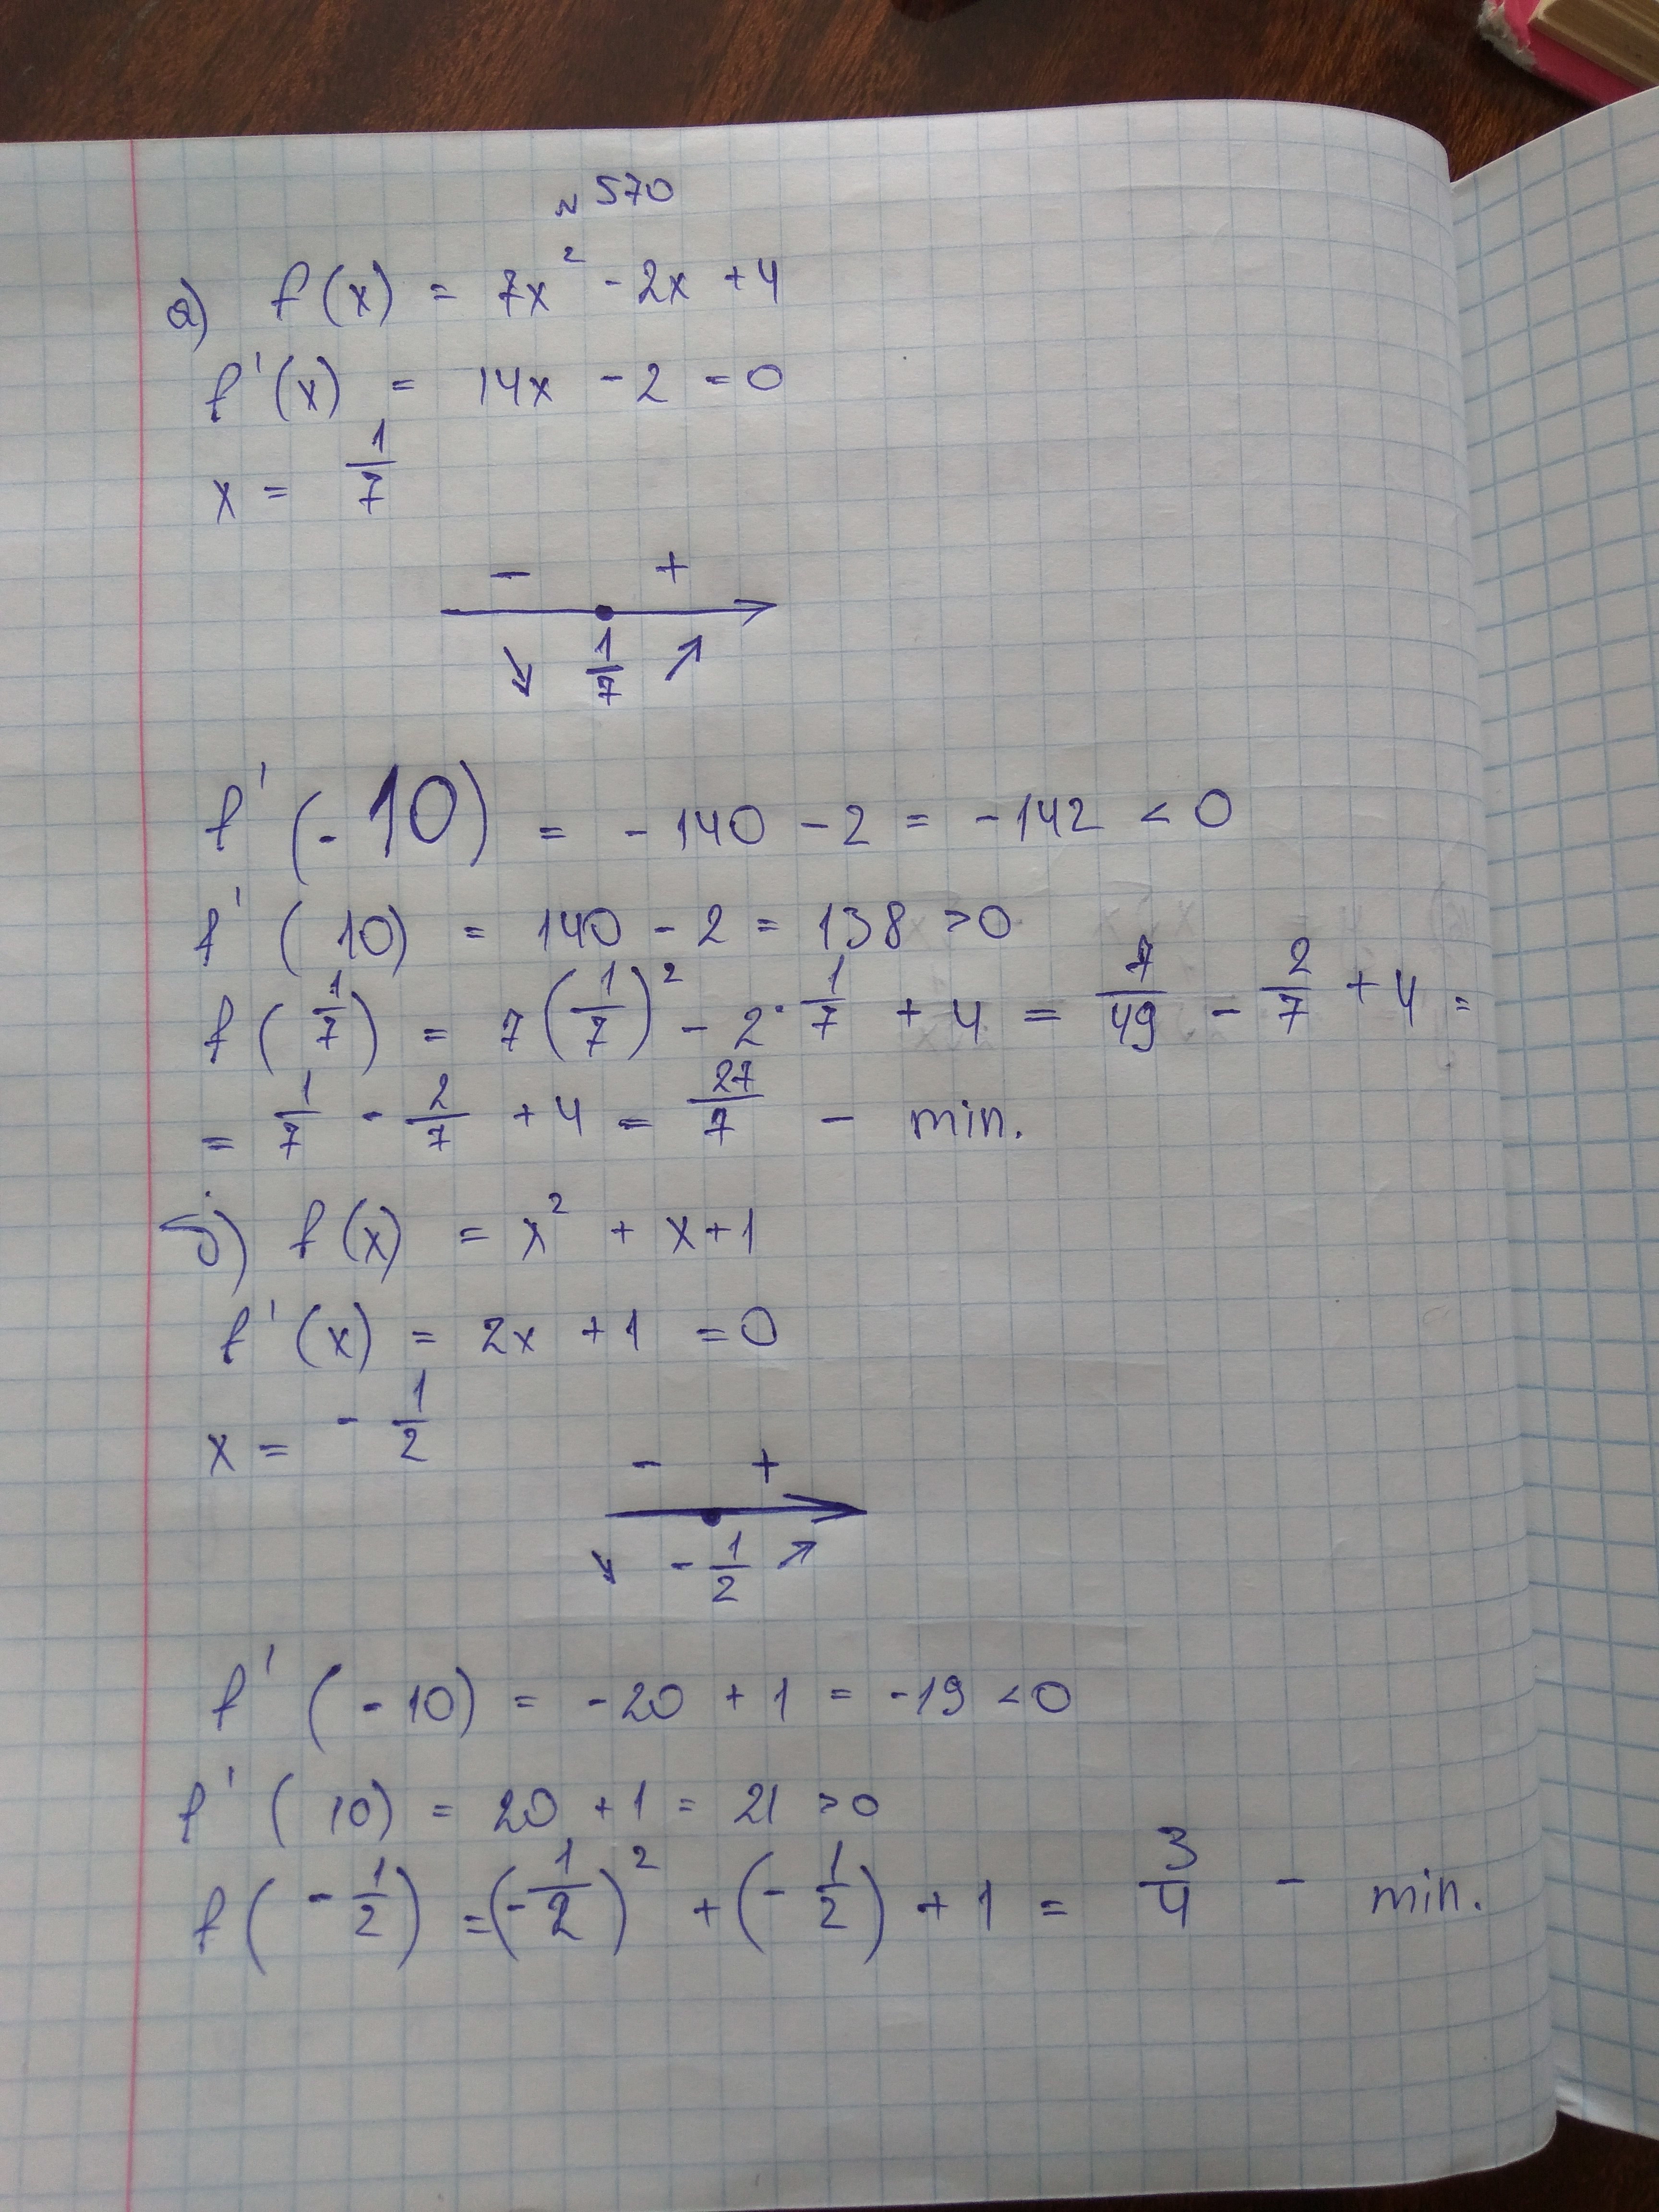 № 570
а) f(x) = 7x² - 2x + 4
f'(x) = 14x - 2 = 0
x = 1/7
- +
↘ 1/7 ↗
f'(-10) = -140 - 2 = -142 < 0
f'(10) = 140 - 2 = 138 > 0
f(1/7) = 7(1/7)² - 2·1/7 + 4 = 7/49 - 2/7 + 4 =
= 1/7 - 2/7 + 4 = 27/7 - min.
б) f(x) = x² + x + 1
f'(x) = 2x + 1 = 0
x = -1/2
- +
↘ -1/2 ↗
f'(-10) = -20 + 1 = -19 < 0
f'(10) = 20 + 1 = 21 > 0
f(-1/2) = (-1/2)² + (-1/2) + 1 = 3/4 - min.